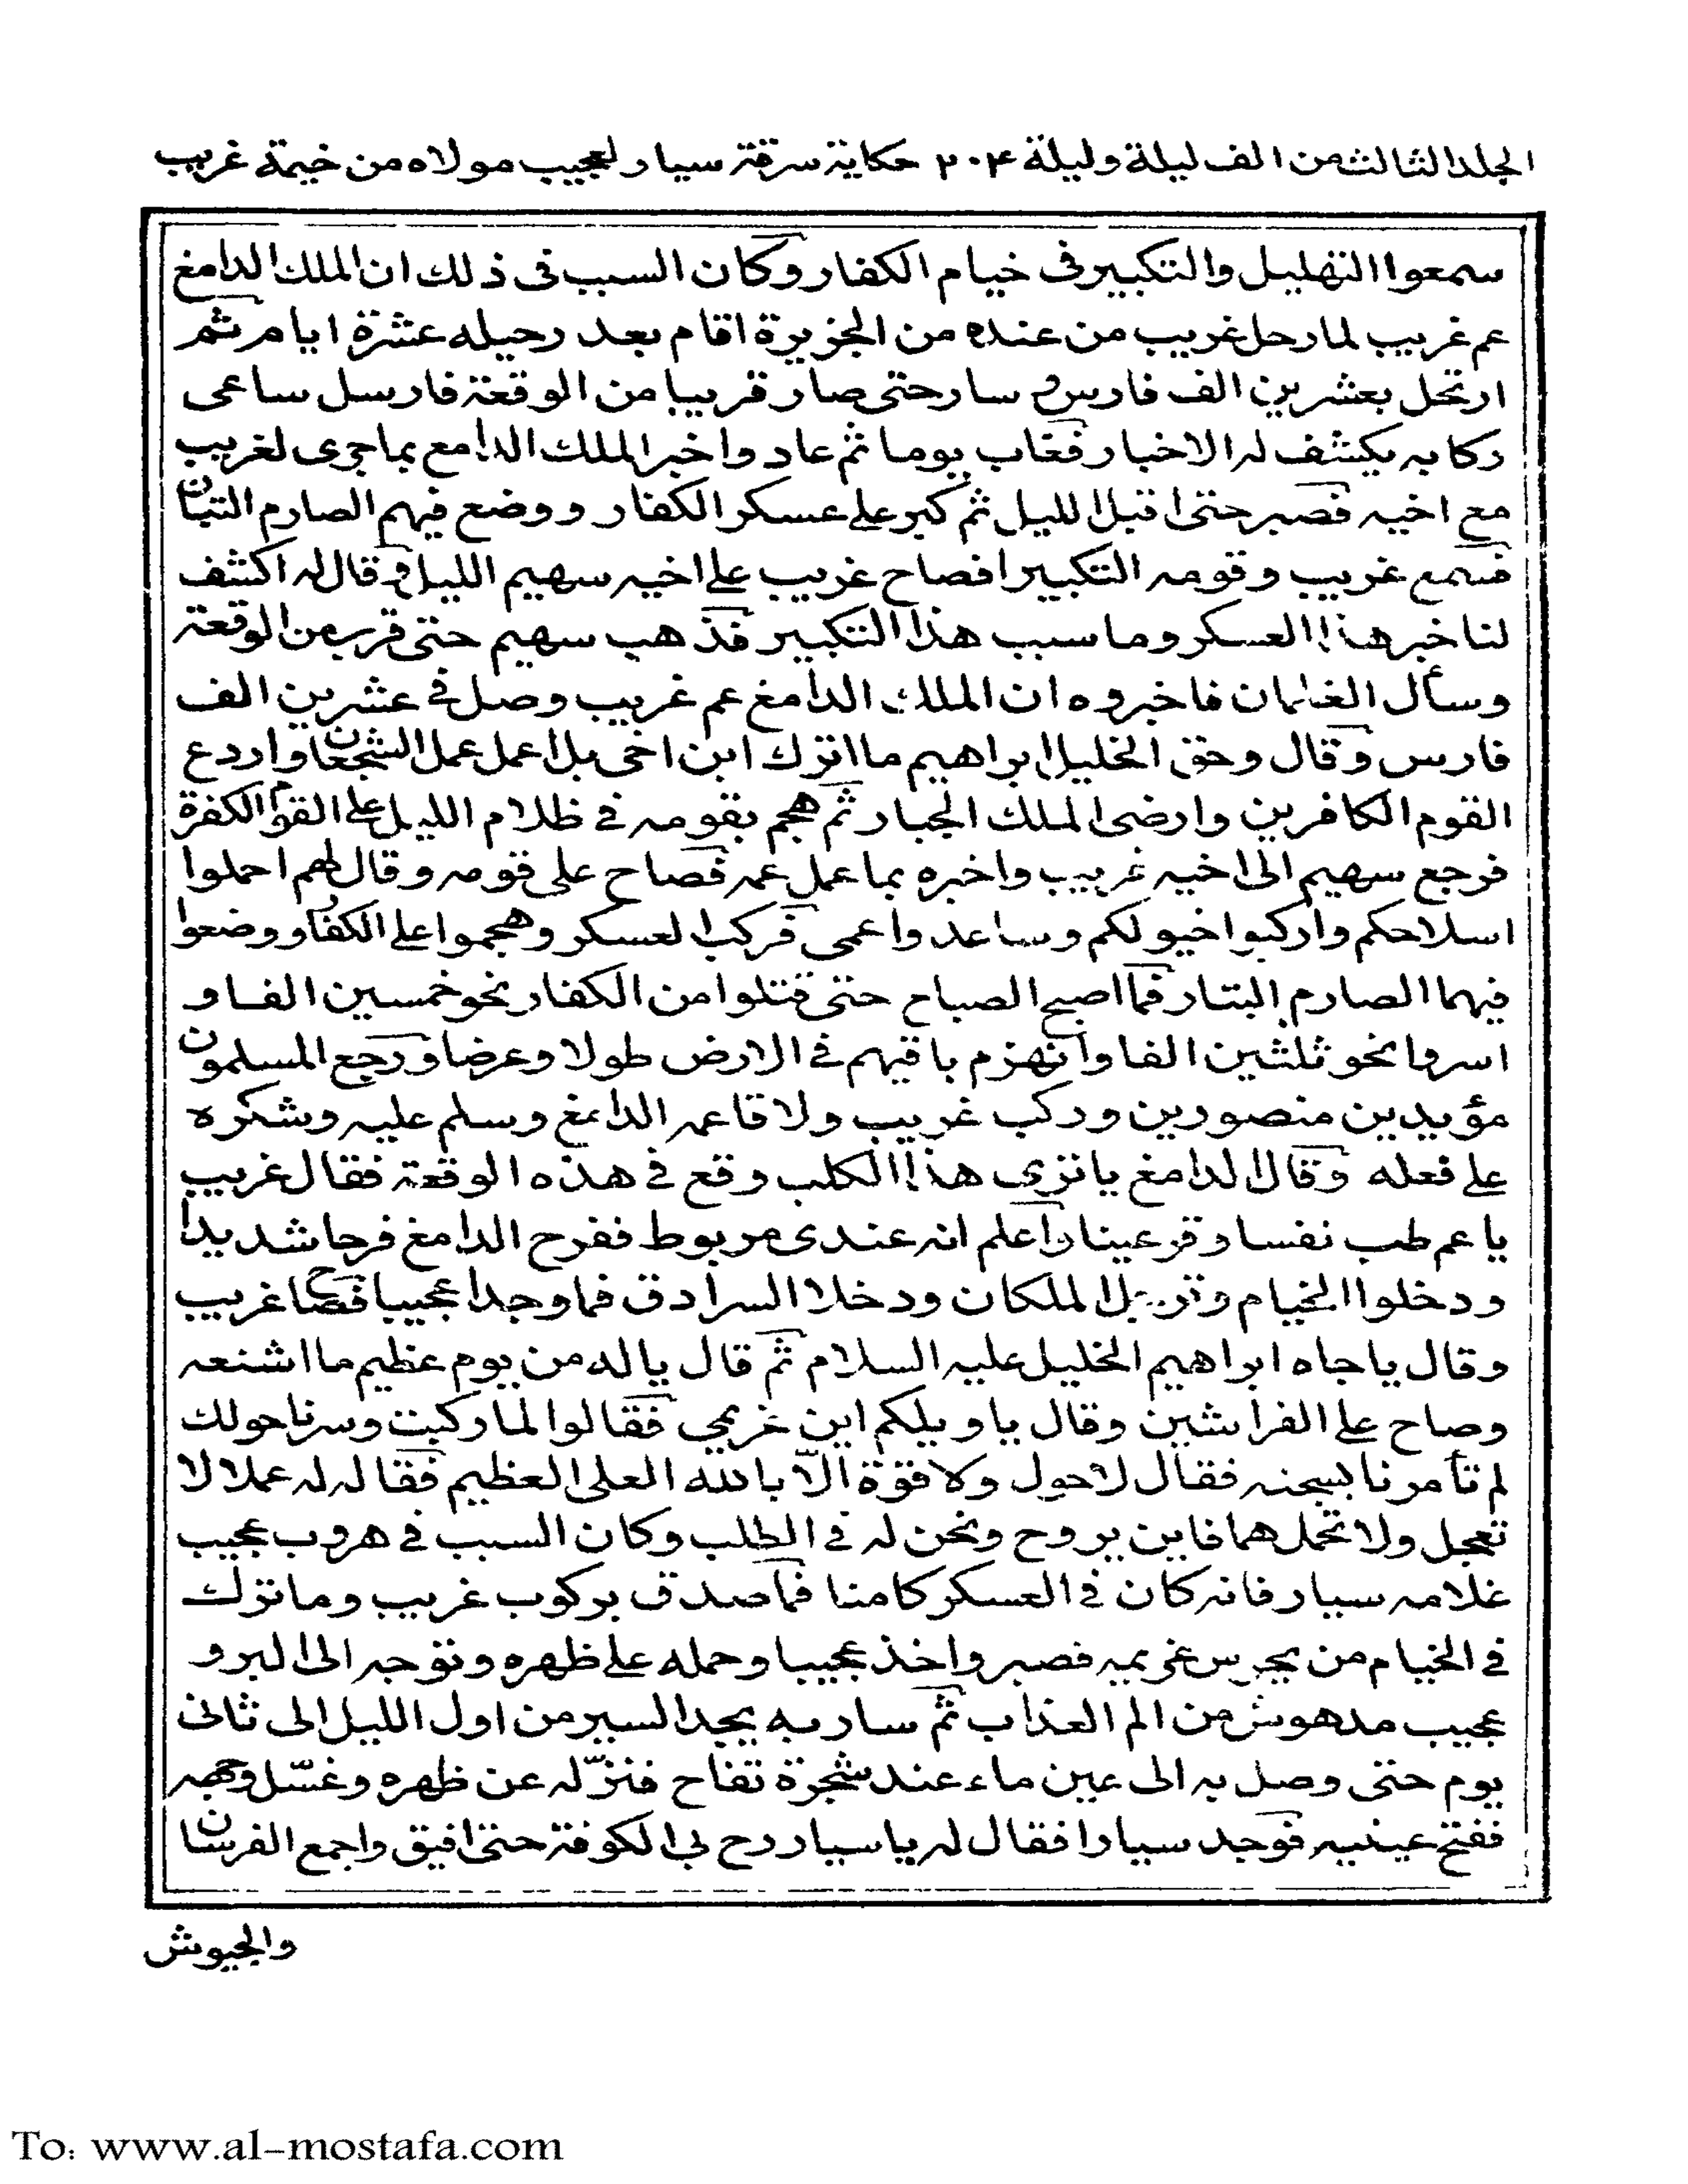 المجلد الثالث من الف ليلة وليلة ٢٠٤ حكاية سرقة سيار لعجيب مولاه من خيمة غريب
سمعوا التهليل والتكبير فى خيام الكفار وكان السبب فى ذلك ان الملك الدامغ
عم غريب لما رحل غريب من عنده من الجزيرة اقام بعد رحيله عشرة ايام ثم
ارتحل بعشرين الف فارس و سار حتى صار قريبا من الوقعة فارسل ساعى
ركابه يكشف له الاخبار فغاب يوما ثم عاد واخبر الملك الدامغ بما جرى لغريب
مع اخيه فصبر حتى اقبل الليل ثم كبر على عسكر الكفار ووضع فيهم الصارم التبان
فسمع غريب وقومه التكبير فصاح غريب على اخيه سهيم الليل وقال له اكشف
لنا خبر هذا العسكر وما سبب هذا التكبير فذهب سهيم حتى قرب من الوقعة
وسأل الغلمان فاخبروه ان الملك الدامغ عم غريب وصل فى عشرين الف
فارس وقال وحق الخليل ابراهيم ما اترك ابن اخى بل اعمل عمل الشجعان واردع
القوم الكافرين وارضى الملك الجبار ثم هجم بقومه فى ظلام الليل على القوم الكفرة
فرجع سهيم الى اخيه غريب واخبره بما عمل عمه فصاح على قومه وقال لهم احملوا
اسلاحكم واركبوا خيولكم وساعدوا عمى فركب العسكر وهجموا على الكفار ووضعوا
فيهما الصارم البتار فما اصبح الصباح حتى قتلوا من الكفار نحو خمسين الفا و
اسروا نحو ثلثين الفا وانهزم باقيهم فى الارض طولا وعرضا ورجع المسلمون
مؤيدين منصورين وركب غريب ولاقا عمه الدامغ وسلم عليه وشكره
على فعله وقال الدامغ يا ترى هذا الكلب وقع فى هذه الوقعة فقال غريب
يا عم طب نفسا وقر عينا واعلم انه عندى مربوط ففرح الدامغ فرحا شديدا
ودخلوا الخيام وترجل الملكان ودخلا السرادق فما وجدا عجيبا فصاح غريب
وقال يا جاه ابراهيم الخليل عليه السلام ثم قال يا له من يوم عظيم ما اشنعه
وصاح على الفراشين وقال يا ويلكم اين غريمى فقالوا لما ركبت وسرنا حولك
لم تأمرنا بسجنه فقال لا حول ولا قوة الّا بالله العلى العظيم فقال له عمه لا
تعجل ولا تحمل هما فاين يروح ونحن له فى الطلب وكان السبب فى هروب عجيب
غلامه سيار فانه كان فى العسكر كامنا فما صدق بركوب غريب وما ترك
فى الخيام من يحرس غريمه فصبر واخذ عجيبا وحمله على ظهره وتوجه الى البر و
عجيب مدهوش من الم العذاب ثم سار به يجد السير من اول الليل الى ثانى
يوم حتى وصل به الى عين ماء عند شجرة تفاح فنزّله عن ظهره وغسّل وجهه
ففتح عينيه فوجد سيارا فقال له يا سيار رح بى الكوفة حتى افيق واجمع الفرسان
والجيوش
To: www.al-mostafa.com